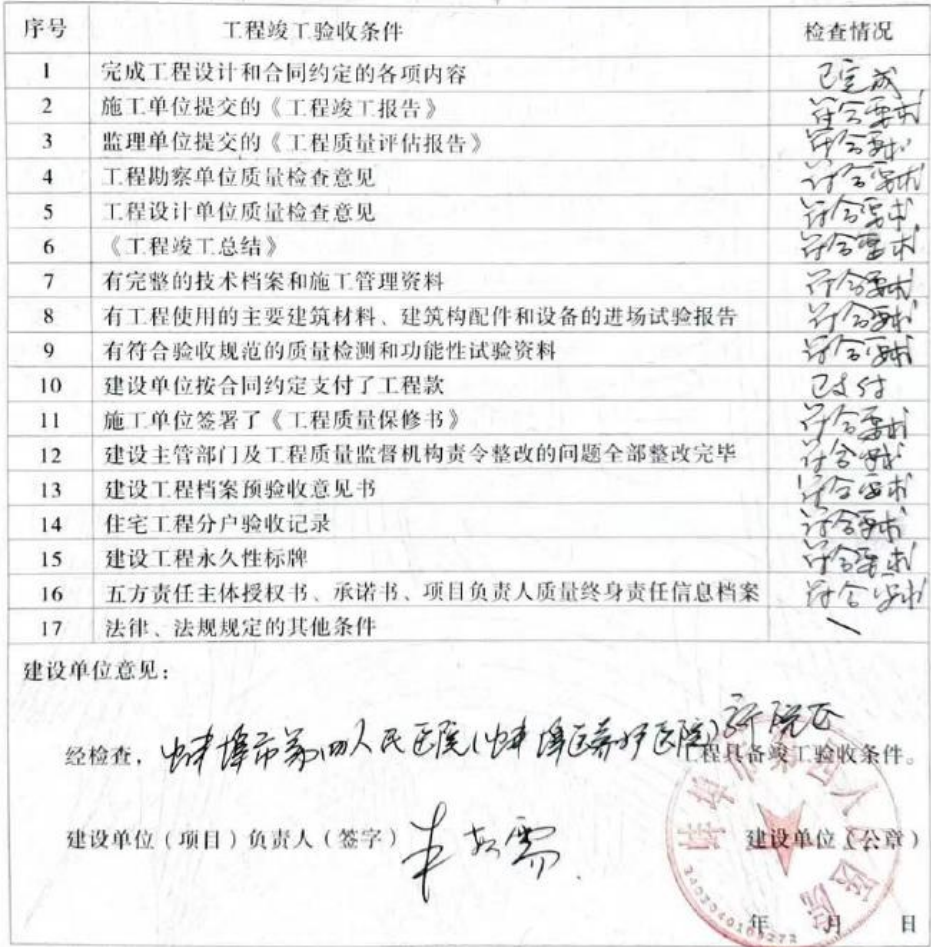 序号 工程竣工验收条件 检查情况
1 完成工程设计和合同约定的各项内容 已完成
2 施工单位提交的《工程竣工报告》 符合要求
3 监理单位提交的《工程质量评估报告》 符合要求
4 工程勘察单位质量检查意见 符合要求
5 工程设计单位质量检查意见 符合要求
6 《工程竣工总结》 符合要求
7 有完整的技术档案和施工管理资料 符合要求
8 有工程使用的主要建筑材料、建筑构配件和设备的进场试验报告 符合要求
9 有符合验收规范的质量检测和功能性试验资料 符合要求
10 建设单位按合同约定支付了工程款 已支付
11 施工单位签署了《工程质量保修书》 符合要求
12 建设主管部门及工程质量监督机构责令整改的问题全部整改完毕 符合要求
13 建设工程档案预验收意见书 符合要求
14 住宅工程分户验收记录 符合要求
15 建设工程永久性标牌 符合要求
16 五方责任主体授权书、承诺书、项目负责人质量终身责任信息档案 符合要求
17 法律、法规规定的其他条件 \
建设单位意见:
经检查,蚌埠市第四人民医院(蚌埠医养护医院)新院区工程具备竣工验收条件。
建设单位(项目)负责人(签字) 建设单位(公章)
蚌埠市第四人民医院
年 月 日